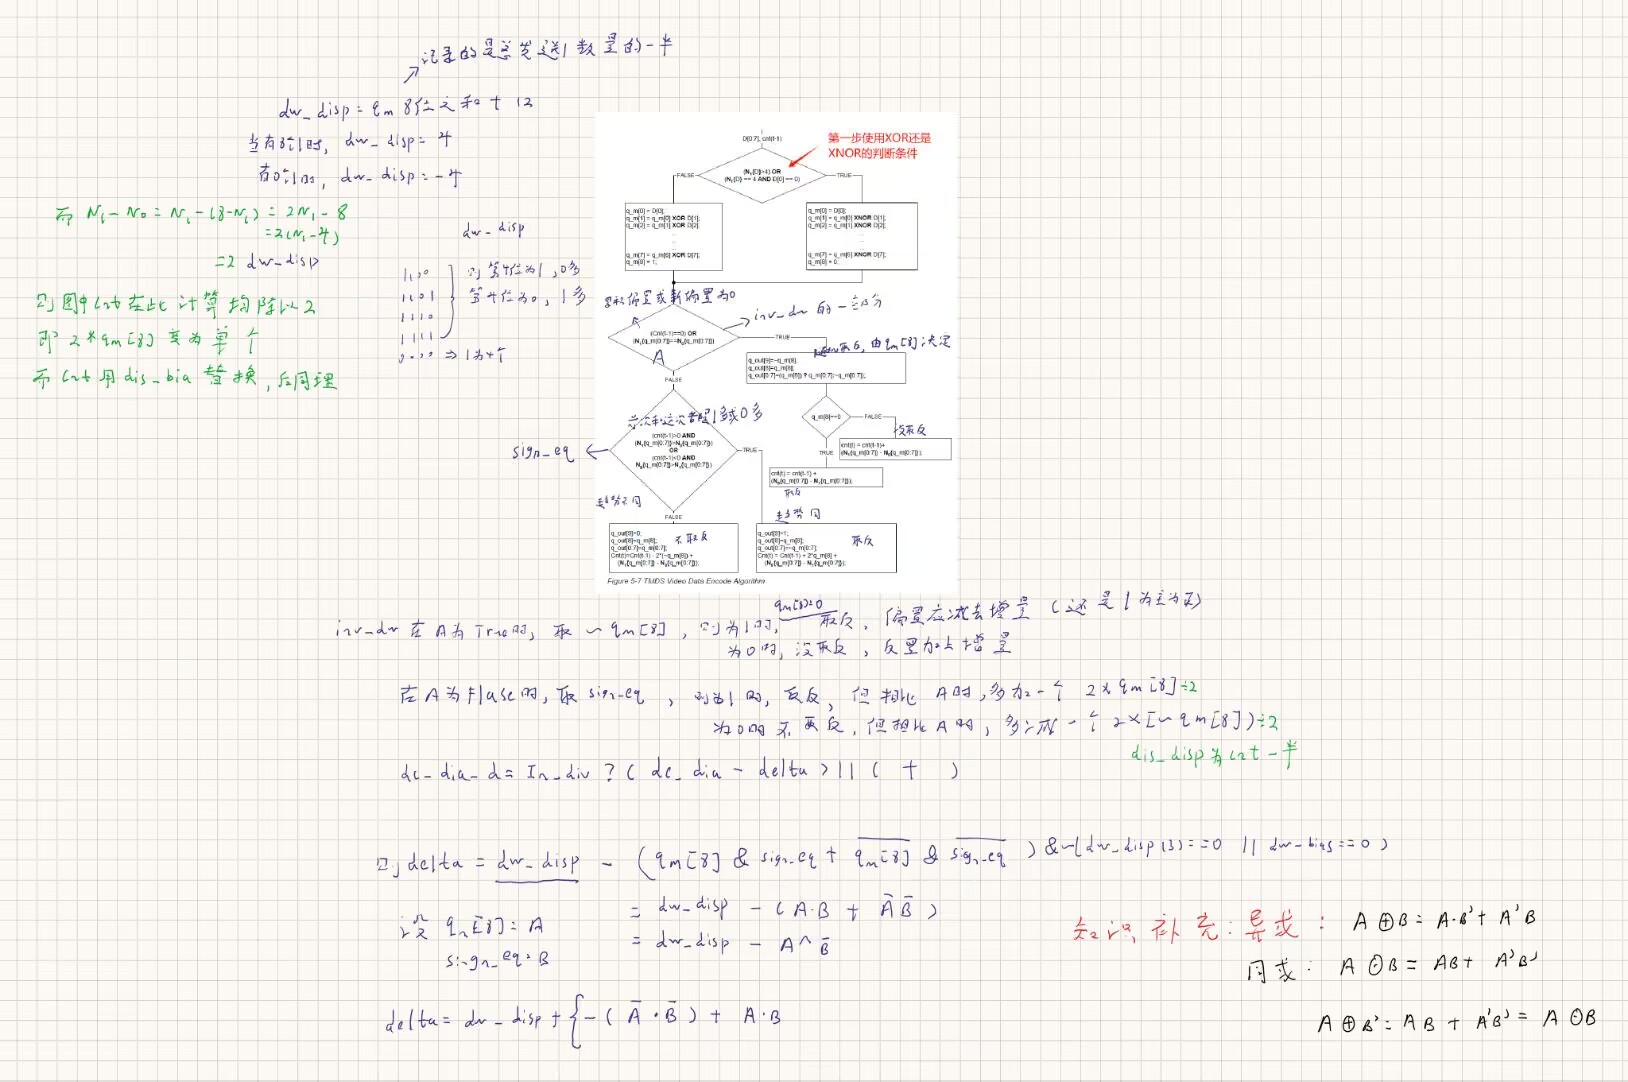 记录的是总发送1数量的一半
dw_disp = qm 8位之和 + 12
当有8个1时, dw_disp = 4
有0个1时, dw_disp = -4
而 N₁-N₀ = N₁-(8-N₁) = 2N₁-8
=2(N₁-4)
=2 dw_disp
则图中cnt在此计算均除以2
即 2*qm[8] 变为单个
而 cnt 用 dis_bia 替换, 后同理
dw_disp
1100
1101
1110
1111
0000 => 1为4个
则第4位为1, 0多
第4位为0, 1多
D[0:7], cnt(t-1)
第一步使用XOR还是
XNOR的判断条件
(N₁{D}>4) OR
(N₁{D} == 4 AND D[0] == 0)
FALSE
TRUE
q_m[0] = D[0];
q_m[1] = q_m[0] XOR D[1];
q_m[2] = q_m[1] XOR D[2];
...
...
q_m[7] = q_m[6] XOR D[7];
q_m[8] = 1;
q_m[0] = D[0];
q_m[1] = q_m[0] XNOR D[1];
q_m[2] = q_m[1] XNOR D[2];
...
...
q_m[7] = q_m[6] XNOR D[7];
q_m[8] = 0;
累积偏置或新偏置为0
inv_dw 的一部分
(Cnt(t-1)==0) OR
(N₁{q_m[0:7]}==N₀{q_m[0:7]})
A
TRUE
取反, 由qm[8]决定
q_out[9]=~q_m[8];
q_out[8]=q_m[8];
q_out[0:7]=(q_m[8]) ? q_m[0:7]:~q_m[0:7];
FALSE
q_m[8]==0
FALSE
没取反
cnt(t) = cnt(t-1)+
(N₁{q_m[0:7]} - N₀{q_m[0:7]});
TRUE
cnt(t) = cnt(t-1) +
(N₀{q_m[0:7]} - N₁{q_m[0:7]});
取反
首次和这次都是1多或0多
(cnt(t-1)>0 AND
(N₁{q_m[0:7]}>N₀{q_m[0:7]})
OR
(cnt(t-1)<0 AND
N₀{q_m[0:7]}>N₁{q_m[0:7]})
sign_eq
TRUE
趋势不同
FALSE
趋势同
q_out[9]=0;
q_out[8]=q_m[8];
q_out[0:7]=q_m[0:7];
Cnt(t)=Cnt(t-1) - 2*(~q_m[8]) +
(N₁{q_m[0:7]} - N₀{q_m[0:7]});
不取反
q_out[9]=1;
q_out[8]=q_m[8];
q_out[0:7]=~q_m[0:7];
Cnt(t) = Cnt(t-1) + 2*q_m[8] +
(N₀{q_m[0:7]} - N₁{q_m[0:7]});
取反
Figure 5-7 TMDS Video Data Encode Algorithm
qm[8]=0
inv_dw 在 A为 True时, 取 ~qm[8], 则为1时, 取反, 偏置应减去增量 (还是1为主为正)
为0时, 没取反, 反置加上增量
在 A为 Flase时, 取 sign_eq, 则为1时, 取反, 但相比 A时, 多加一个 2×qm[8]÷2
为0时不取反, 但相比A时, 多减一个 2×[~qm[8])÷2
dis_disp为cnt一半
dc_dia_d = In_div ? ( dc_dia - delta ) || ( + )
则 delta = dw_disp - (qm[8] & sign_eq + qm[8] & sign_eq ) & ~(dw_disp[3]==0 || dw_bias==0)
设 qm[8]: A
sign_eq: B
= dw_disp - (A·B + A̅ B̅)
= dw_disp - A^B̅
delta = dw_disp + { -(A̅·B̅) + A·B
知识补充: 异或: A⊕B = A·B' + A'B
同或: A⊙B = AB + A'B'
A⊕B' = AB + A'B' = A⊙B